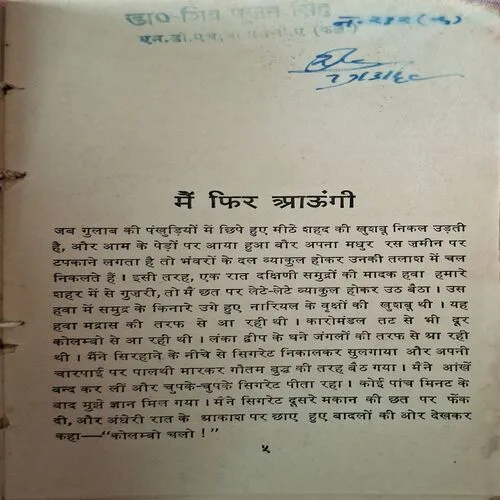 डा० शिव पूजन सिंह
मैं फिर आऊंगी
जब गुलाब की पंखुड़ियों में छिपे हुए मीठे शहद की खुशबू निकल उड़ती
है, और आम के पेड़ों पर आया हुआ बौर अपना मधुर रस ज़मीन पर
टपकाने लगता है तो भंवरों के दल व्याकुल होकर उनकी तलाश में चल
निकलते हैं । इसी तरह, एक रात दक्षिणी समुद्रों की मादक हवा हमारे
शहर में से गुज़री, तो मैं छत पर लेटे-लेटे व्याकुल होकर उठ बैठा । उस
हवा में समुद्र के किनारे उगे हुए नारियल के वृक्षों की खुशबू थी । यह
हवा मद्रास की तरफ से आ रही थी । कारोमंडल तट से भी दूर
कोलम्बो से आ रही थी । लंका द्वीप के घने जंगलों की तरफ से आ रही
थी । मैंने सिरहाने के नीचे से सिगरेट निकालकर सुलगाया और अपनी
चारपाई पर पालथी मारकर गौतम बुद्ध की तरह बैठ गया । मैंने आंखें
बन्द कर लीं और चुपके-चुपके सिगरेट पीता रहा । कोई पांच मिनट के
बाद मुझे ज्ञान मिल गया । मैंने सिगरेट दूसरे मकान की छत पर फेंक
दी, और अंधेरी रात के आकाश पर छाए हुए बादलों की ओर देखकर
कहा—"कोलम्बो चलो !"
५